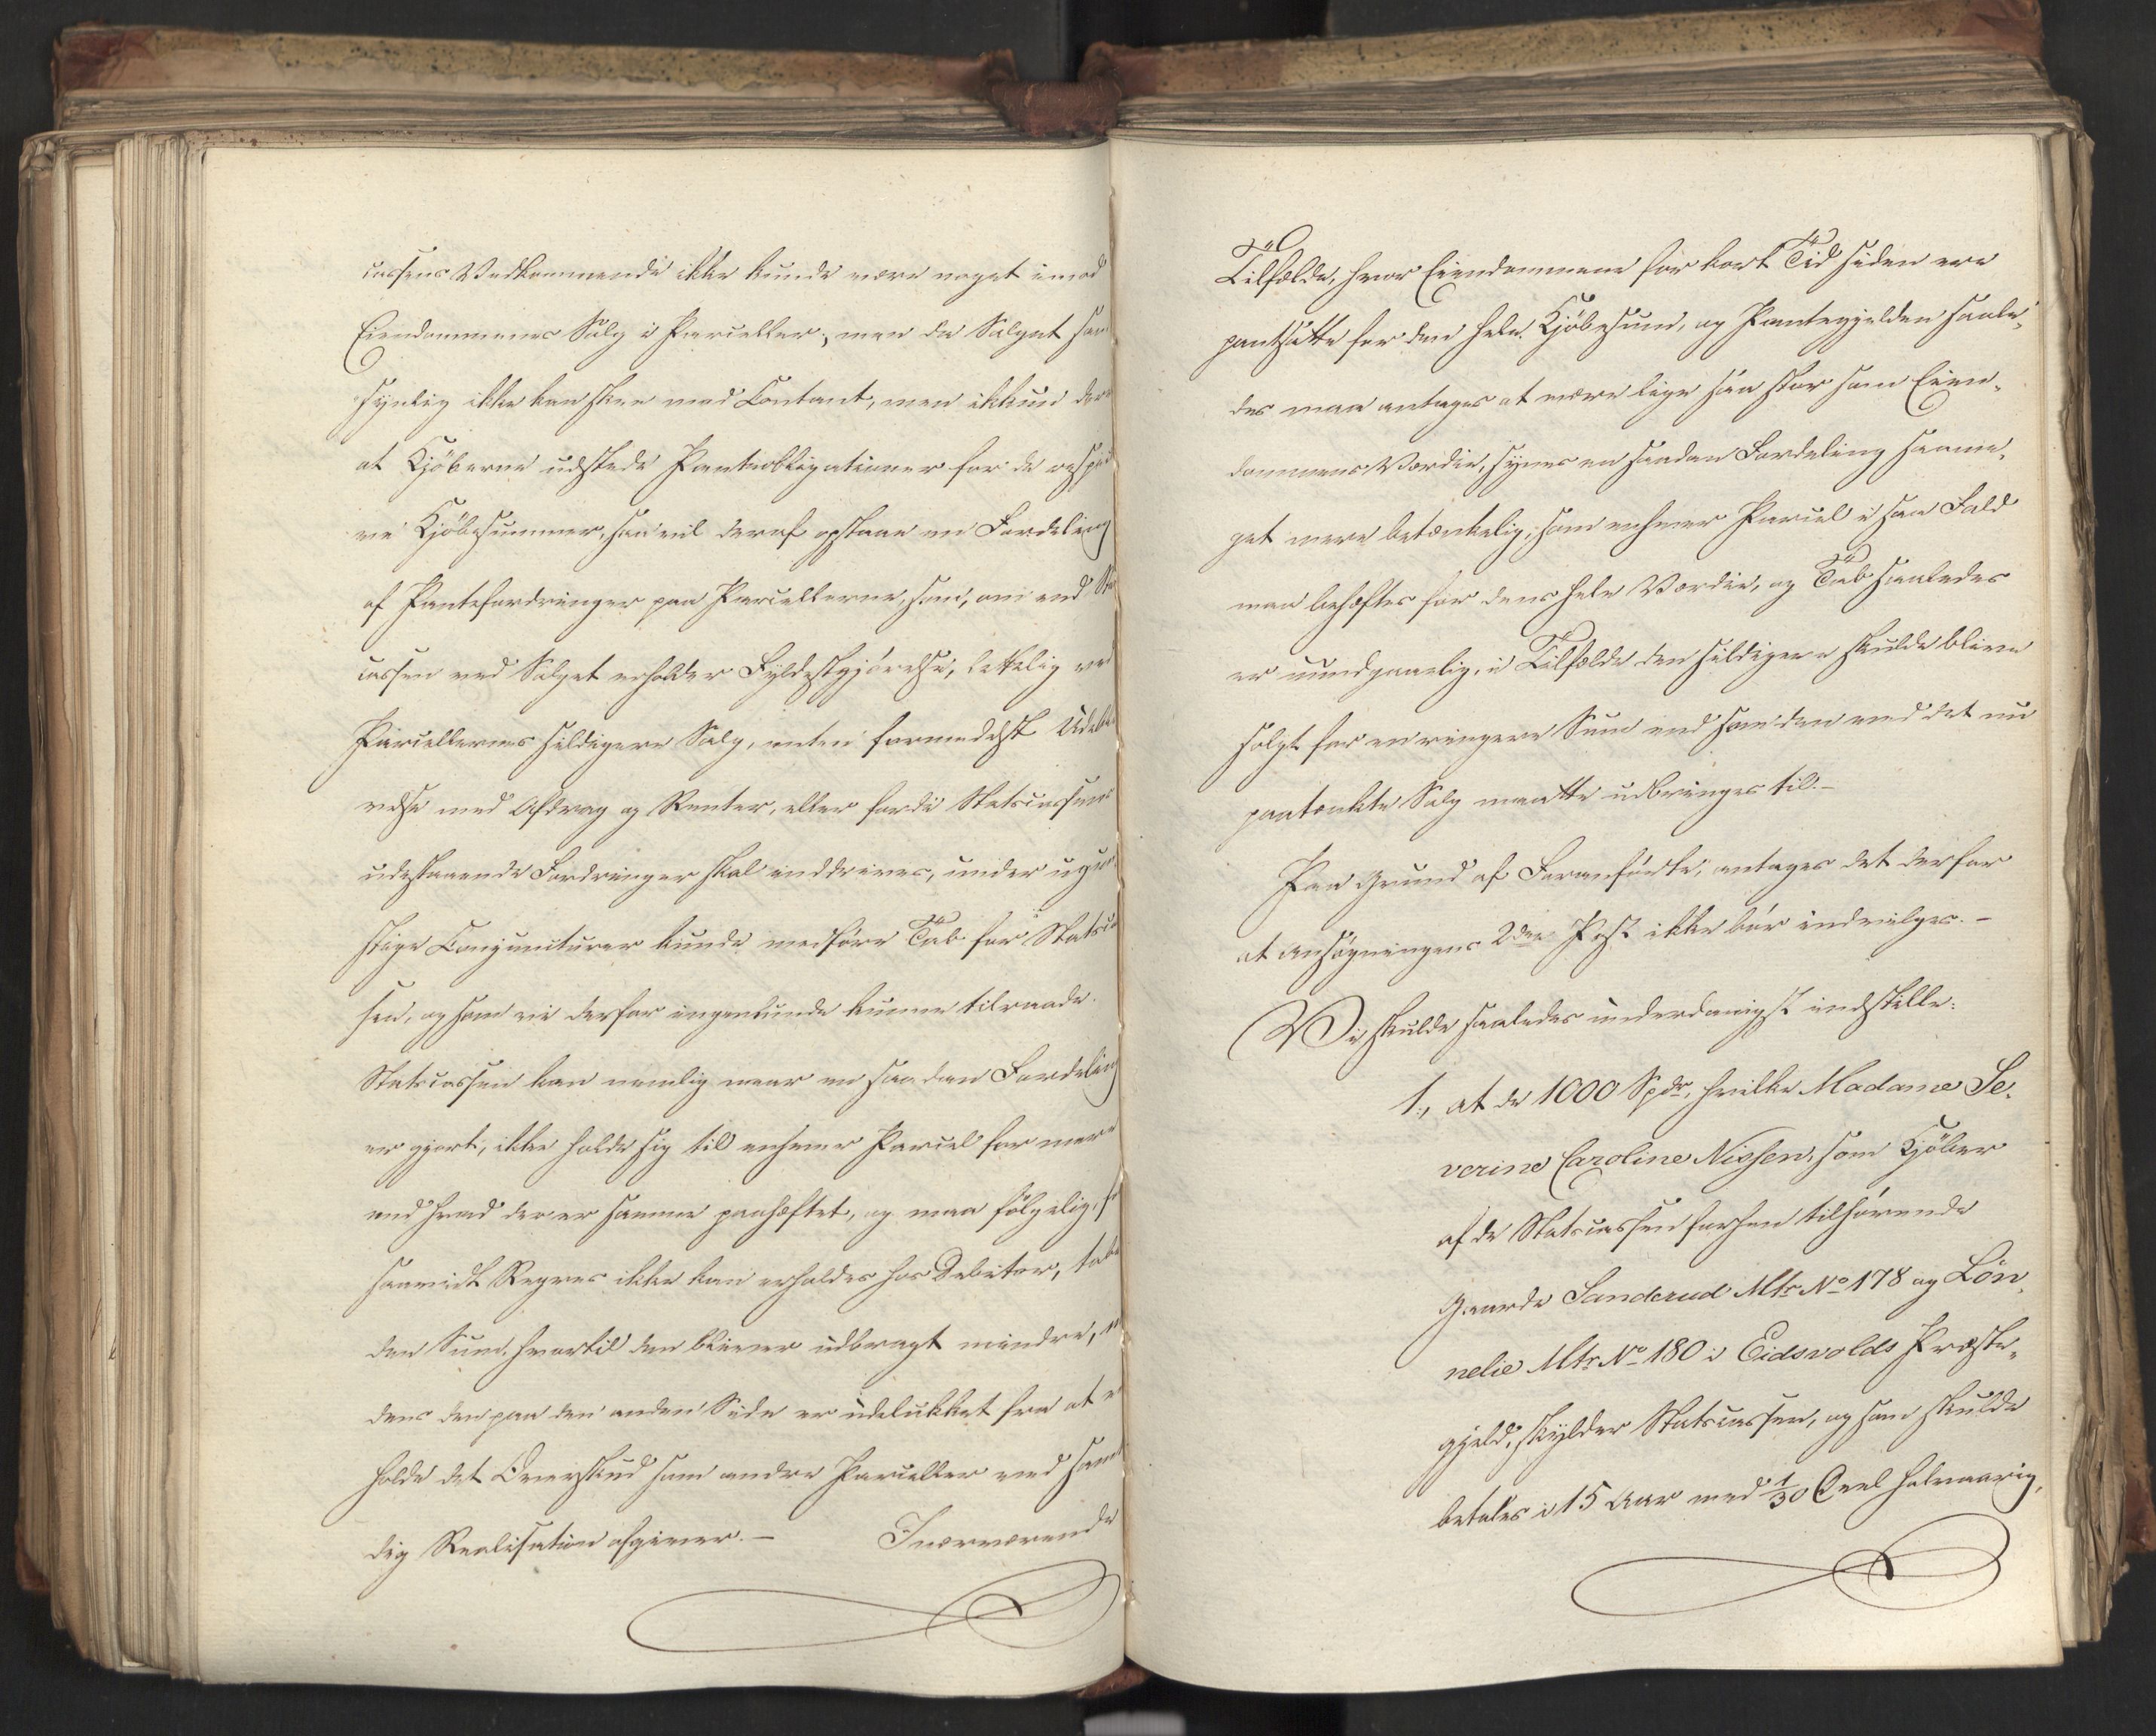 cassens Vedkommende ikke kunde være noget imod
Eiendommenes Salg i Parceller; men da Salget san
synlig ikke kan skee mod Contant, men ikkun der
at Kjöberne udstede Panteobligationer for de respec
ve Kjöbesummer, saa vil deraf opstaae en Fordeling
af Pantefordringer paa Parcellerne, som, om end Sta
cassen ved Salget erholder Fyldestgjörelse, lettelig ved
Parcellernes sildigere Salg, enten formedelst Udebli
velse med Afdrag og Renter, eller fordi Statscassens
udestaaende Fordringer skal inddrives, under ugun
stige Conjuncturer kunde medföre Tab for Statsca
sen, og som vi derfor ingenlunde kunne tilraade.
Statscassen kan nemlig naar en saadan Fordeling
er gjort, ikke holde sig til enhver Parcel for mere
end hvad der er samme paahæftet, og maa fölgelig, f
saavidt Regres ikke kan erholdes hos Debitor, tabe
den Sum, hvortil den bliver udbragt mindre, m
dens den paa den anden Side er udelukket fra at e
holde det Overskud som andre Parceller ved sam
dig Realisation afgiver. – I nærværende
Tilfælde, hvor Eiendommene for kort Tid siden ere
pantsatte for den hele Kjöbesum, og Pantegjelden saale-
des maa antages at være lige saa stor som Eien-
dommens Værdie, synes en saadan Fordeling saame-
get mere betænkelig, som enhver Parcel i saa Fald
maa behæftes for dens hele Værdie, og Tab saaledes
er uundgaaelig, i Tilfælde den sildigere skulde blive
solgt for en ringere Sum end som den ved det nu
paatænkte Salg maatte udbringes til. –
Paa Grund af Foranförte, antages det derfor
at Ansögningens 2den Post ikke bör indvilges. –
Vi skulde saaledes underdanigst indstille:
1, at de 1000 Spdr, hvilke Madame Se-
verine Caroline Nissen, som Kjöber
af de Statscassen forhen tilhörende
Gaarde Sanderud Mtr No 178 og Lön-
nelie Mtr No 180 i Eidsvolds Præste-
gjeld, skylder Statscassen, og som skulde
betales i 15 Aar med 1/30 Deel halvaarig,